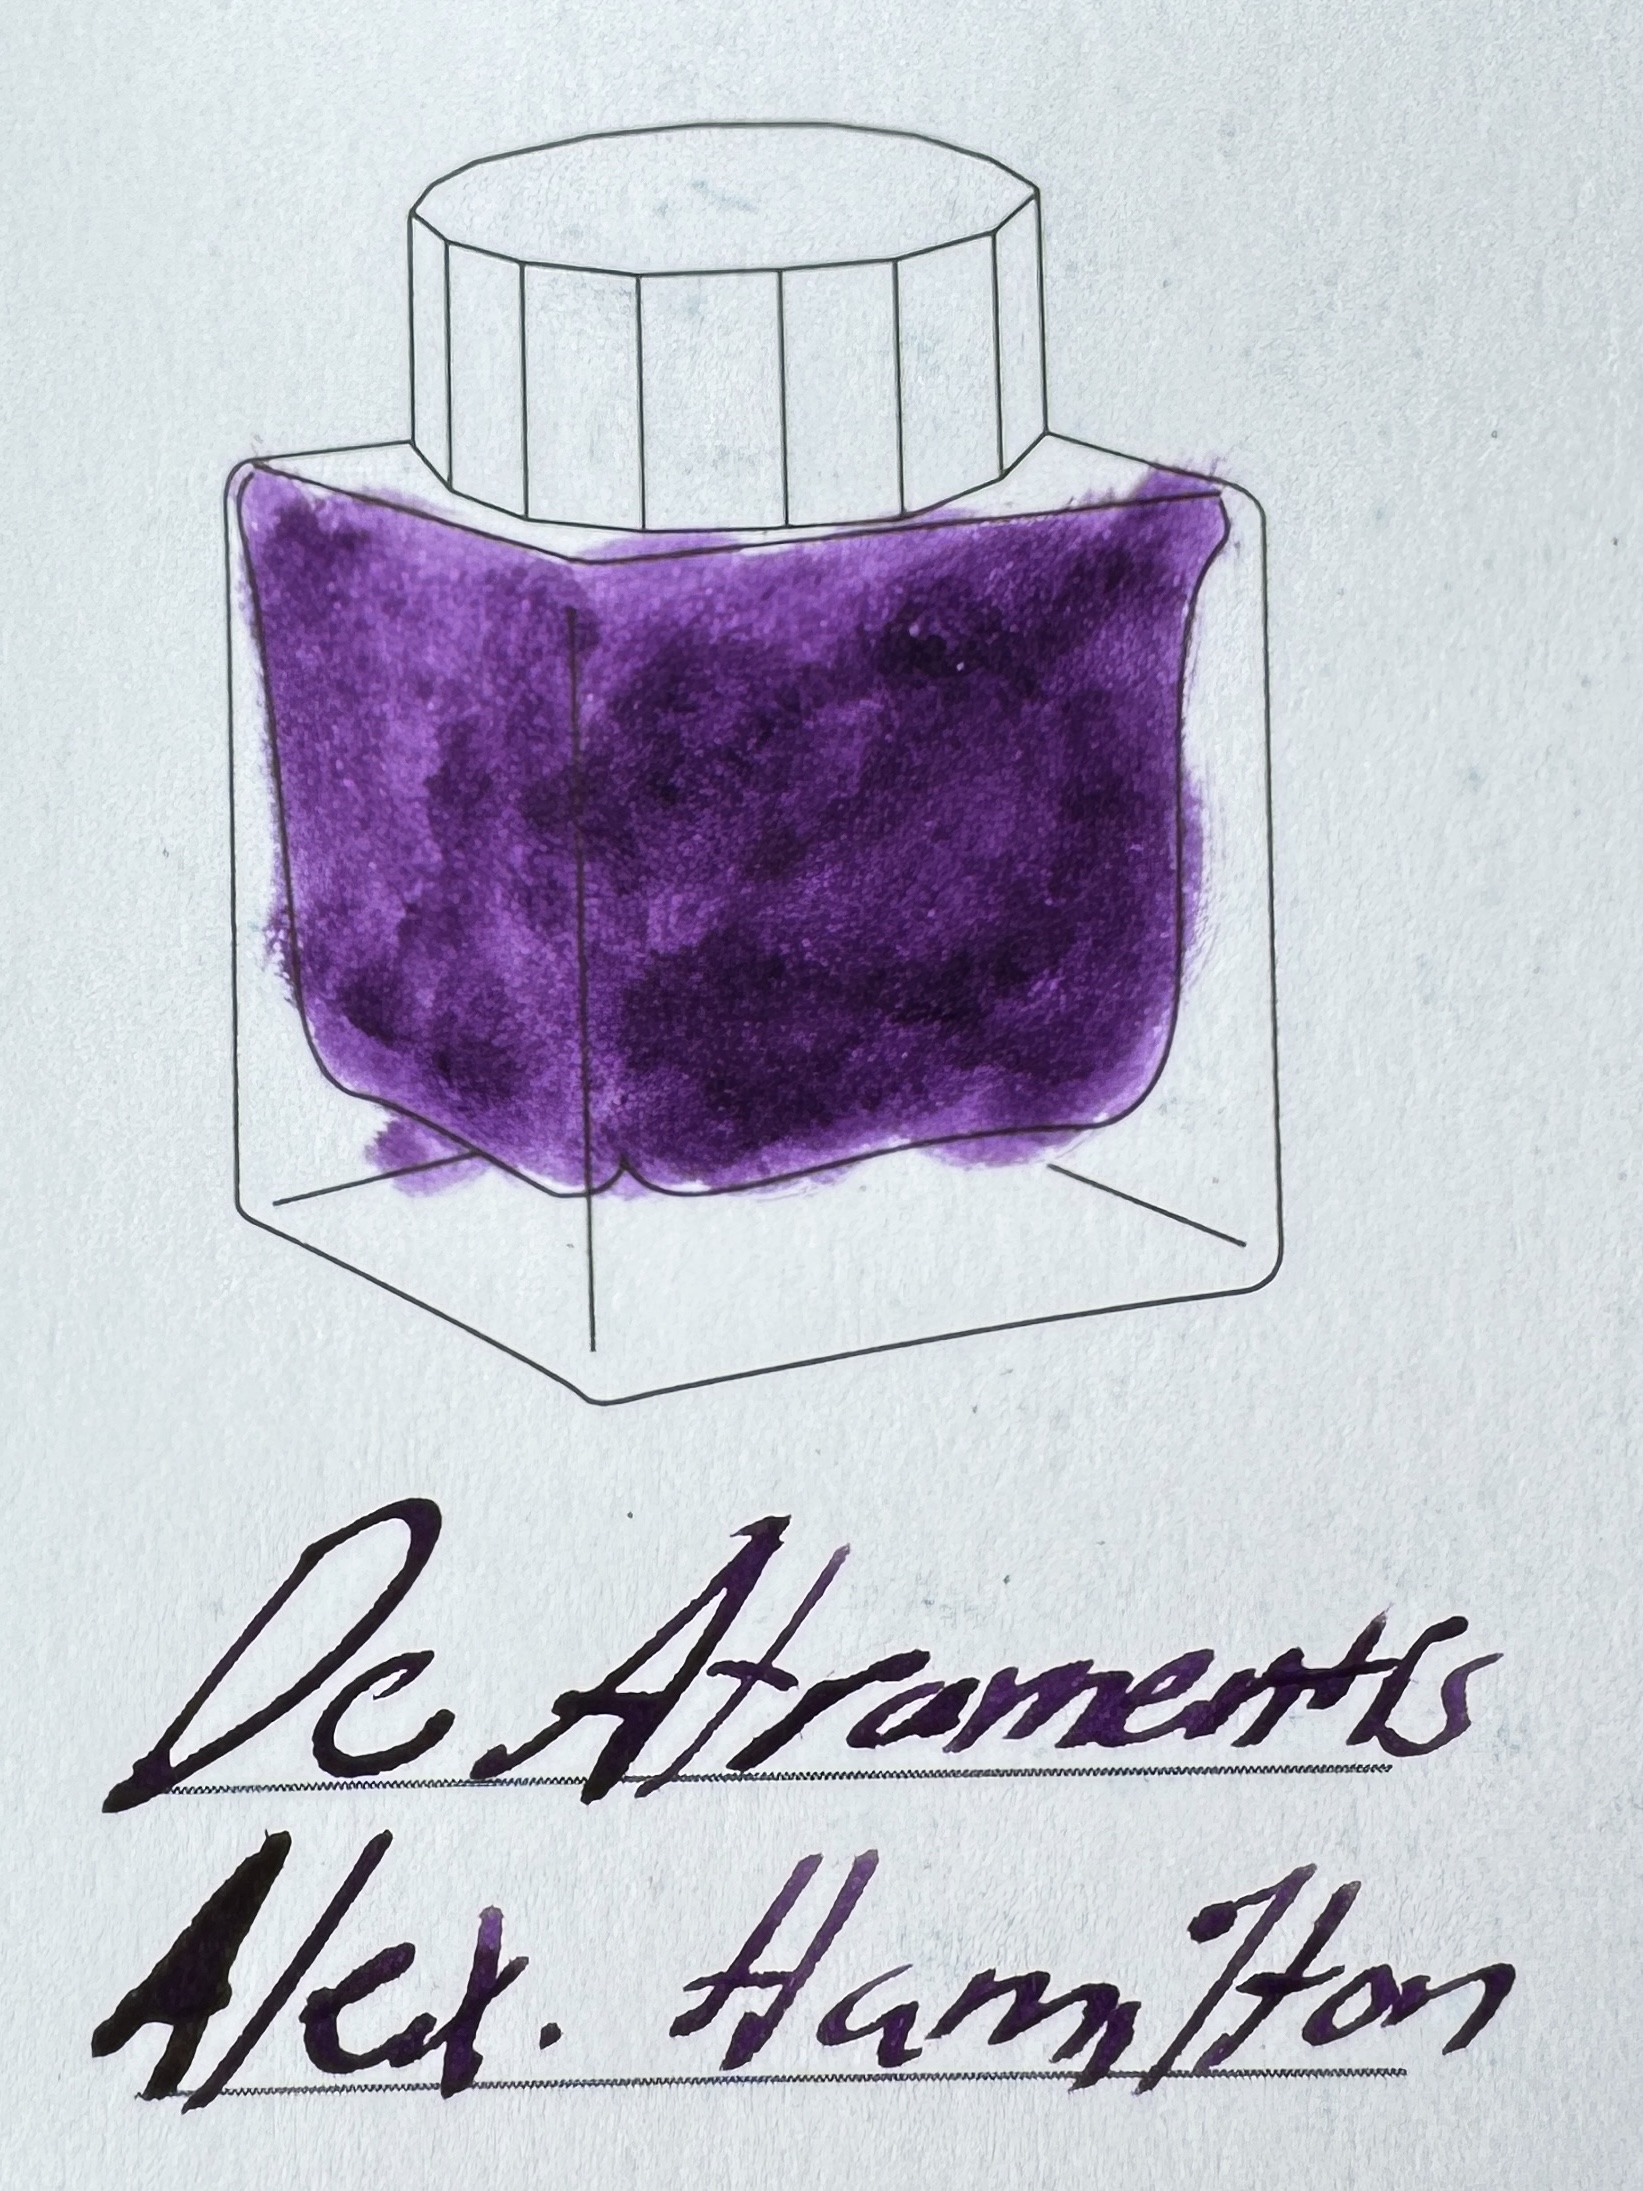 De Atramentis
Alex. Hamilton